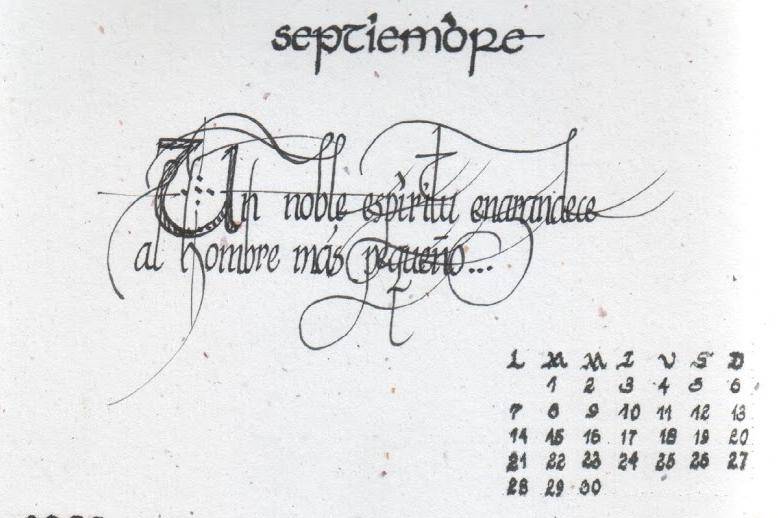 septiembre
Un noble espíritu enarandece
al hombre más pequeño...
L M M I V S D
1 2 3 4 5 6
7 8 9 10 11 12 13
14 15 16 17 18 19 20
21 22 23 24 25 26 27
28 29 30